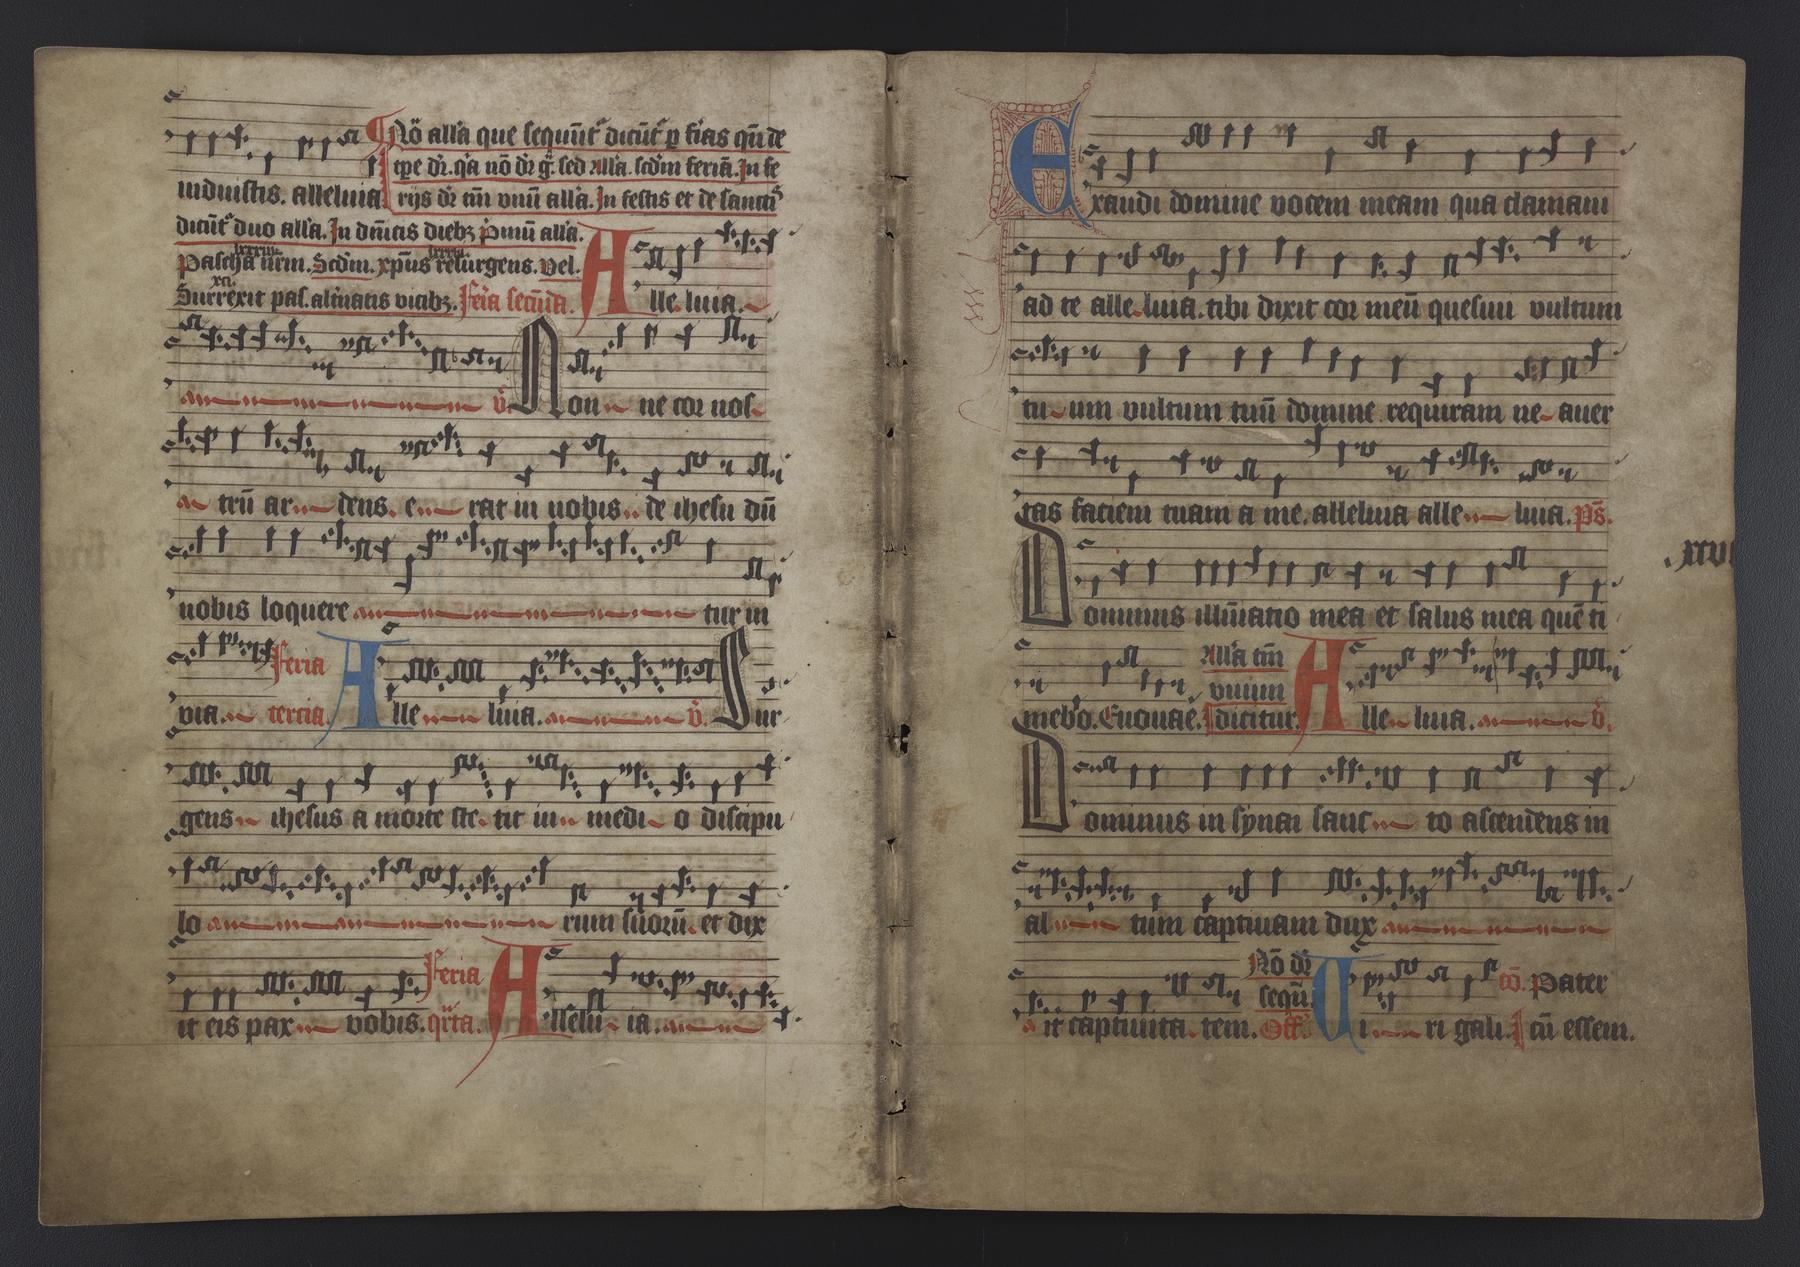 Nō all'a que sequūt' dicūt' p fīas qn̄ de
tp̄e dr̄. q'a nō dr̄ g̈. sed All'a. scdm̄ feriā. In fe
induistis. alleluia
rijs dr̄ tm̄ vnū all'a. In festis et de sanctis
dicūt' duo all'a. In dn̄icis diebꝫ p'mū all'a.
Pascha nr̄m. Scdm̄. xp̄us resurgens. vel.
Surrexit pas. alt'natis vicibꝫ. Feria secūda. Alleluia.
v̄. Non ne cor nos-
trū ardens. erat in nobis de ihesu dū
nobis loqueretur in
via. Feria tercia. Alleluia. v̄. Sur
gens ihesus a morte stetit in medio discipu
lorum suorū. et dix
it eis pax vobis. Feria q̄rta. Alleluia.
Exaudi domine vocem meam qua clamaui
ad te alleluia. tibi dixit cor meū quesiui vultum
tuum vultum tuū domine requiram ne auer
tas faciem tuam a me. alleluia alleluia. Ps̄.
xxvi
Dominus illūinatio mea et salus mea quē ti
mebo. Euouae. All'a tm̄ vnum dicitur. Alleluia. v̄.
Dominus in synai sancto ascendens in
altum captiuam dux
it captiuitatem. Off. Nō dr̄ seqū. Viri gali. cō. Pater
cū essem.